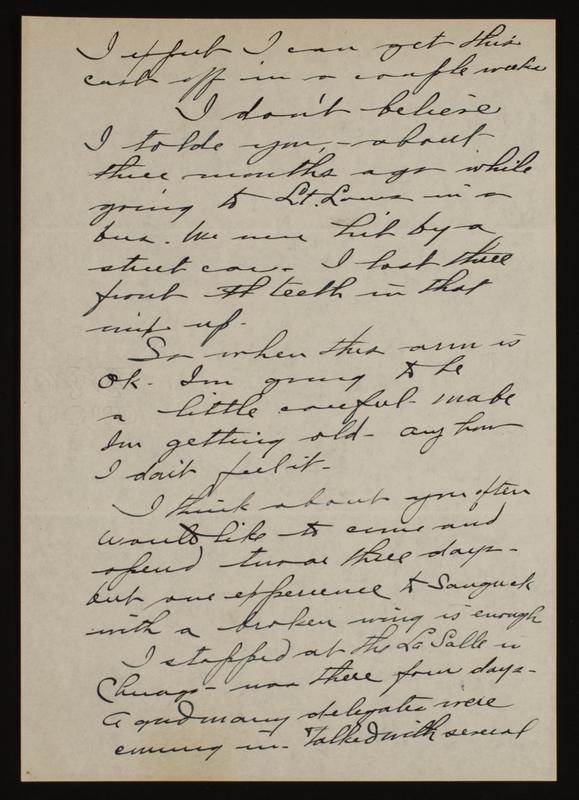 I expect I can get this
cast off in a couple weeks
I don't believe
I tolde you, - about
three months ago while
going to St. Louis in a
bus. We were hit by a
street car - I lost three
front teeth in that
mix up.
So when this arm is
OK - Im going to be
a little careful - mabe
Im getting old - any how
I don't feel it -
I think about you often
would like to come and
spend two or three days -
but one experience to Sauguck
with a broken wing is enough
I stopped at the La Salle in
Chicago - was there four days -
A good many delegates were
coming in - Talked with several